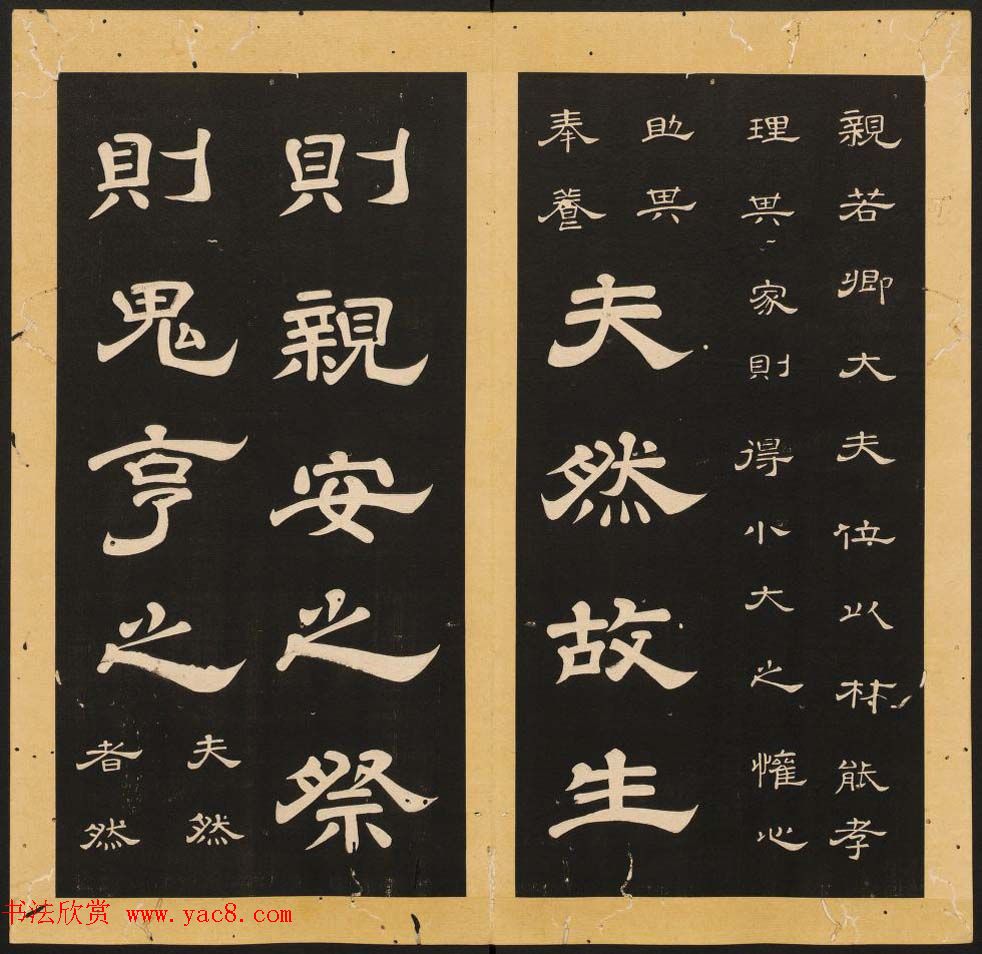 親若卿大夫位以材能孝
理其家則得小大之懽心
助其
奉養
夫然故生
則親安之祭
則鬼亨之
夫然
者然
书法欣赏 www.yac8.com